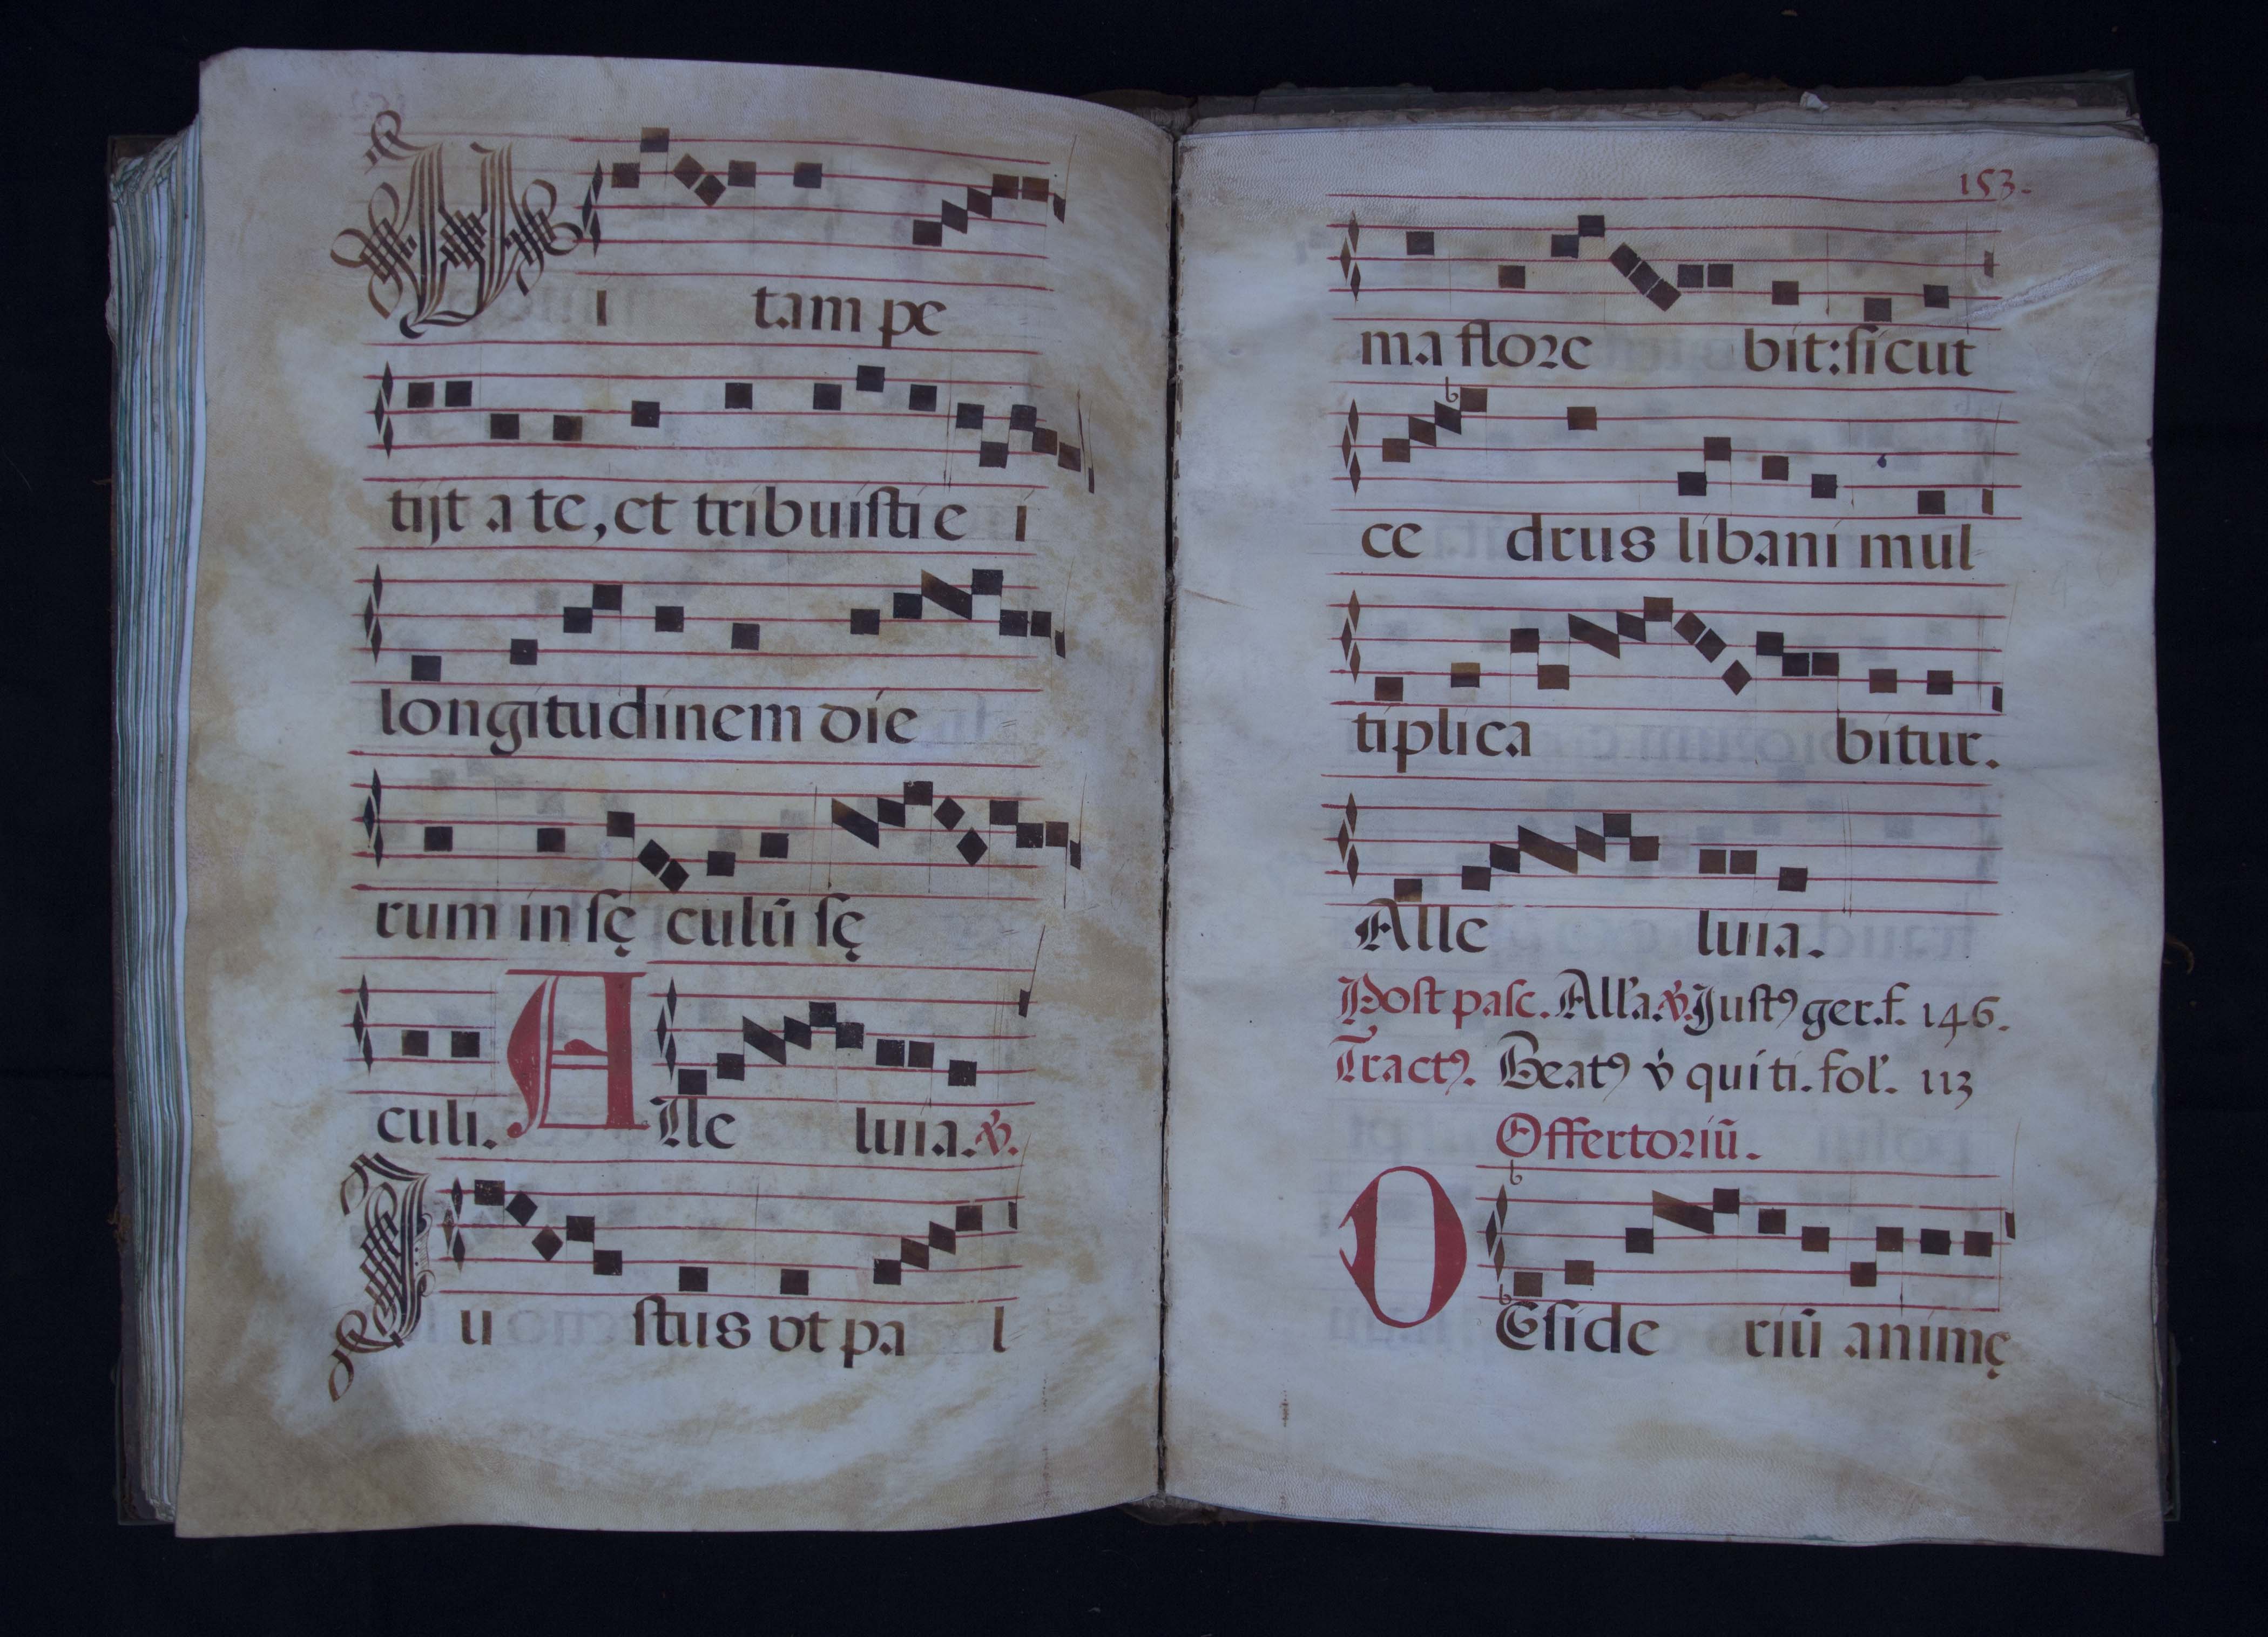 VI tam pe
tijt a te, et tribuisti e i
longitudinem die
rum in sę culū sę
culi. Alle luia. ℣.
Iu stus vt pa l
153.
ma flore bit: sicut
ce drus libani mul
tiplica bitur.
Alle luia.
Post pasc. All'a. ℣. Justꝰ ger. f. 146.
Tractꝰ. Beatꝰ v̓ qui ti. fol'. 113
Offertoriū.
DEside riū animę